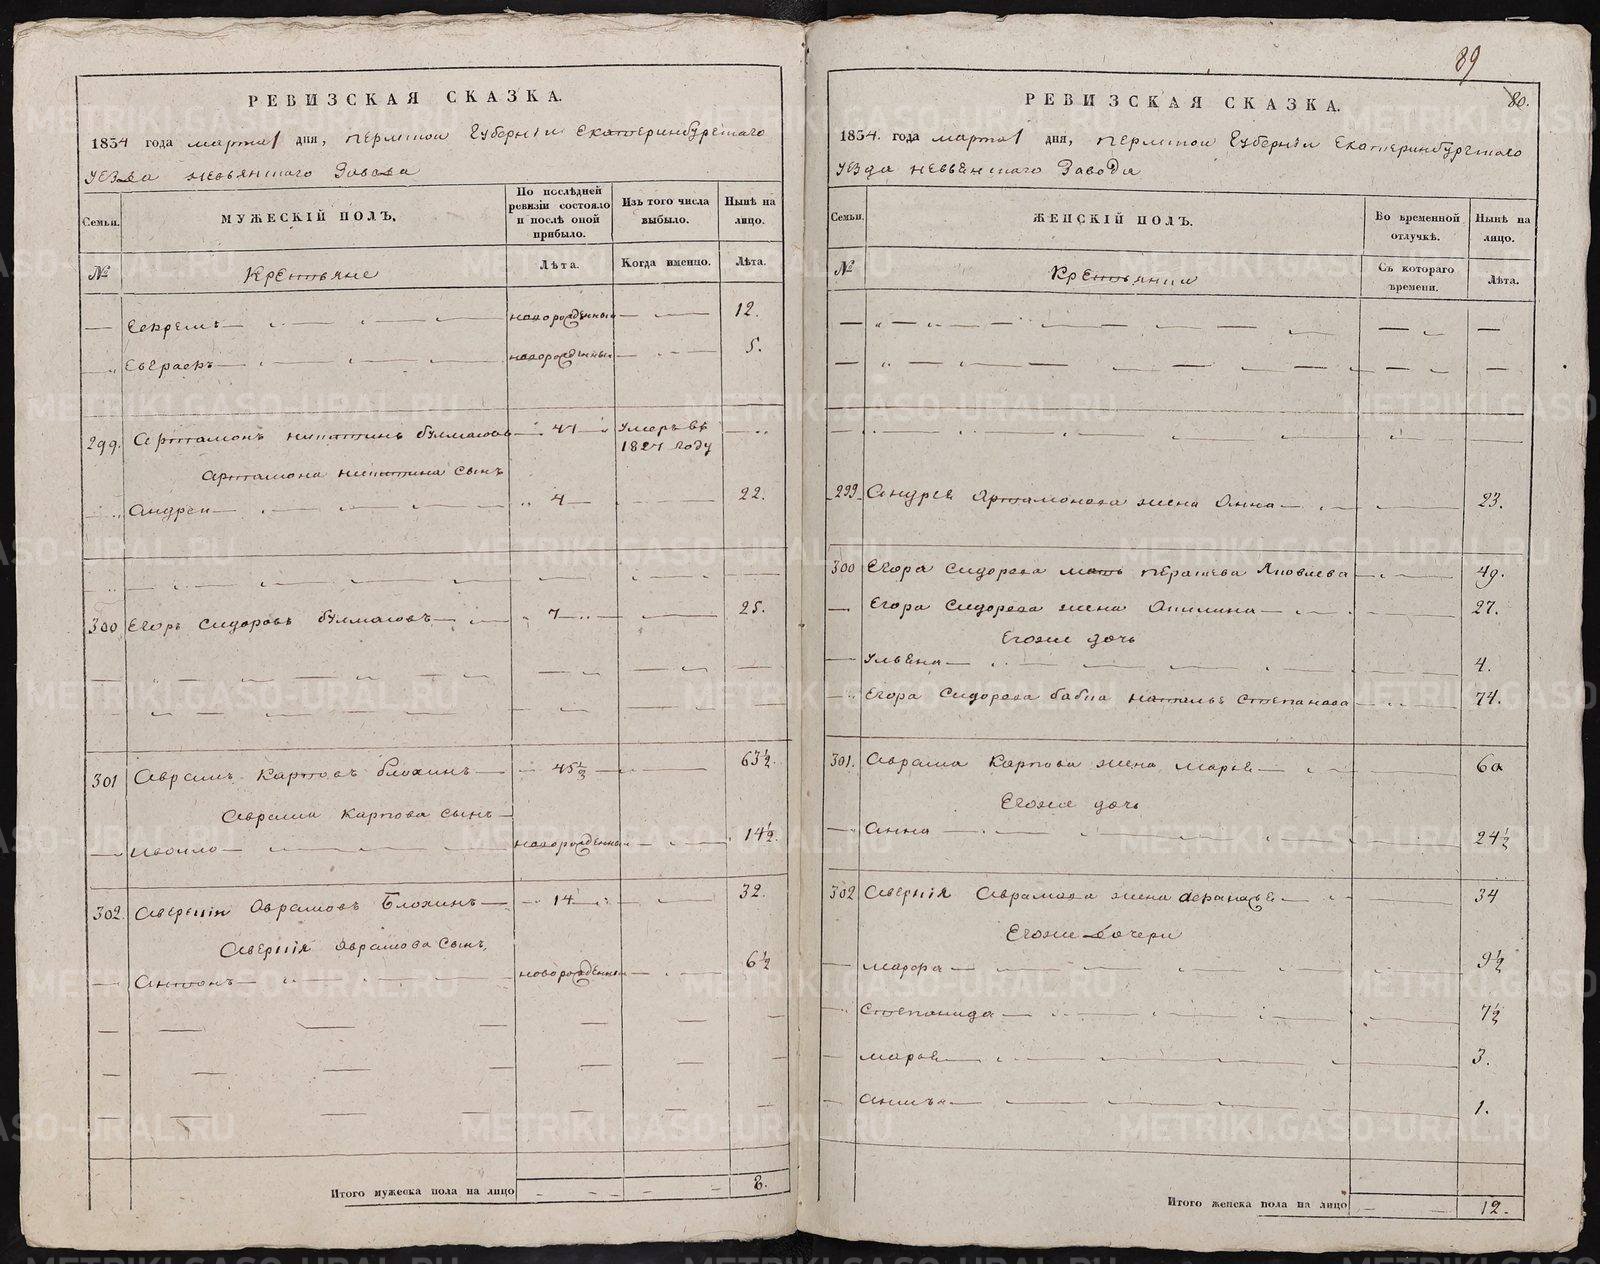 89
РЕВИЗСКАЯ СКАЗКА.
1834 года марта 1 дня, Пермской Губернiи Екатеринбургскаго
уезда Невьянскаго Завода
Семьи.
МУЖЕСКIЙ ПОЛЪ.
По послѣдней ревизiи состояло и послѣ оной прибыло.
Изъ того числа выбыло.
Нынѣ на лицо.
№
Крестьяне
Лѣта.
Когда именно.
Лѣта.
Ефремъ новорожденный 12.
Евграфъ новорожденный 5.
299. Артамонъ Никитинъ Булмасовъ 47 умеръ въ
1827 году
Артамона Никитина сынъ
Андреи 4 22.
300 Егоръ Сидоровъ Булмасовъ 7 25.
301 Аврамъ Карповъ Блохинъ 45 63½.
Аврама Карпова сынъ
новорожденный 14½.
302. Аверкiи Аврамовъ Блохинъ 14 32.
Аверкiя Аврамова сынъ,
Антонъ новорожденный 6½
Итого мужеска пола на лицо 8.
РЕВИЗСКАЯ СКАЗКА.
80.
1834. года марта 1 дня, Пермской Губернiи Екатеринбургскаго
уезда Невьянскаго Завода
Семьи.
ЖЕНСКIЙ ПОЛЪ.
Во временной отлучкѣ.
Нынѣ на лицо.
№
Крестьянки
Съ котораго времени.
Лѣта.
299 Андрея Артамонова жена Анна 23.
300 Егора Сидорова мать Яковлева 49.
Егора Сидорова жена Акилина 27.
Егоже дочь
Ульяна 4.
Егора Сидорова бабка Наталья Степанова 74.
301. Аврама Карпова жена Марья 60
Егоже дочь
Анна 24½
302 Аверкiя Аврамова жена 34
Егоже дочери
Марфа 9½
Степанида 7½
Марья 3.
1.
Итого женска пола на лицо 12.
METRIKI.GASO-URAL.RU